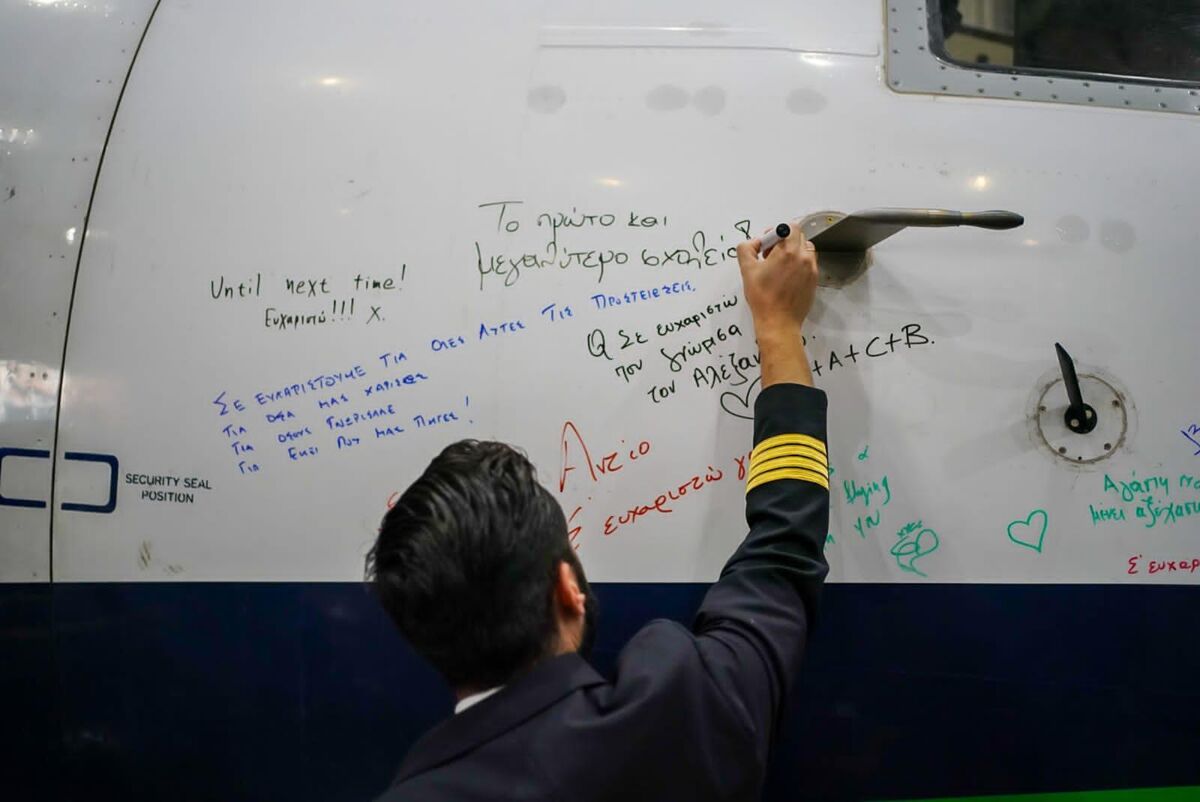 Το πρώτο και
μεγαλύτερο σχολείο
Until next time!
Ευχαριστώ!!! X.
ΣΕ ΕΥΧΑΡΙΣΤΟΥΜΕ ΓΙΑ ΟΛΕΣ ΑΥΤΕΣ ΤΙΣ ΠΡΟΣΓΕΙΩΣΕΙΣ.
ΓΙΑ ΟΣΑ ΜΑΣ ΧΑΡΙΣΕΣ
ΓΙΑ ΟΣΟΥΣ ΓΝΩΡΙΣΑΜΕ
ΓΙΑ ΕΚΕΙ ΠΟΥ ΜΑΣ ΠΗΓΕΣ!
Σε ευχαριστώ
που γνώρισα
τον
+A+C+B.
Αντίο
ευχαριστώ
SECURITY SEAL
POSITION
Αγάπη
μένει
Σ' ευχαρ